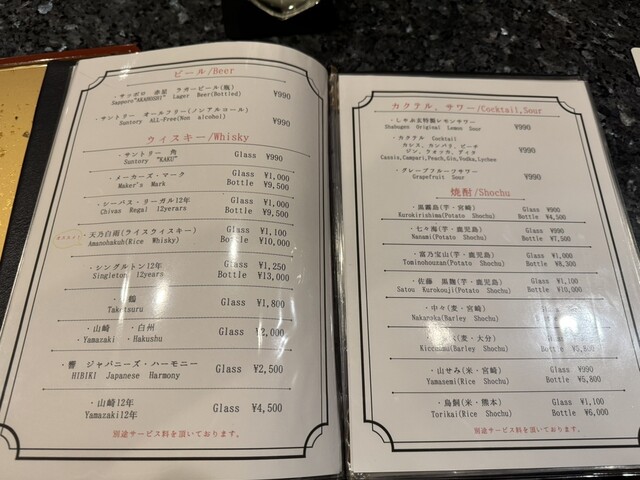 ビール/Beer
・サッポロ 赤星 ラガービール(瓶)
Sapporo"AKABOSHI" Lager Beer(Bottled)
¥990
・サントリー オールフリー(ノンアルコール)
Suntory ALL-Free(Non alcohol)
¥990
ウィスキー/Whisky
・サントリー 角 Glass ¥990
Suntory "KAKU"
・メーカーズ・マーク Glass ¥1,000
Maker's Mark Bottle ¥9,500
・シーバス・リーガル12年 Glass ¥1,000
Chivas Regal 12yerars Bottle ¥9,500
・天乃白雨(ライスウィスキー) Glass ¥1,100
Amanohakuh(Rice Whisky) Bottle ¥10,000
・シングルトン12年 Glass ¥1,250
Singleton 12years Bottle ¥13,000
鶴 Glass ¥1,800
Taketsuru
・山崎 ・白州 Glass ¥2,000
・Yamazaki ・Hakushu
・響 ジャパニーズ・ハーモニー Glass ¥2,500
HIBIKI Japanese Harmony
・山崎12年 Glass ¥4,500
Yamazaki12年
別途サービス料を頂いております。
カクテル、サワー/Cocktail,Sour
・しゃぶ玄特製レモンサワー ¥990
Shabugen Original Lemon Sour
・カクテル Cocktail
カシス、カンパリ、ピーチ
ジン、ウォッカ、ディタ ¥990
Cassis,Campari,Peach,Gin,Vodka,Lychee
・グレープフルーツサワー ¥990
Grapefruit Sour
焼酎/Shochu
・黒霧島(芋・宮崎) Glass ¥900
Kurokirishima(Potato Shochu) Bottle ¥4,500
・七々海(芋・鹿児島) Glass ¥990
Nanami(Potato Shochu) Bottle ¥7,500
・富乃宝山(芋・鹿児島) Glass ¥1,000
Tominohouzan(Potato Shochu) Bottle ¥8,300
・佐藤 黒麹(芋・鹿児島) Glass ¥1,100
Satou Kurokouji(Potato Shochu) Bottle ¥10,000
・中々(麦・宮崎) Glass
Nakanaka(Barley Shochu) Bottle
(麦・大分) Glass
(Barley Shochu) Bottle
・山せみ(米・宮崎) Glass ¥990
Yamasemi(Rice Shochu) Bottle ¥5,800
・鳥飼(米・熊本) Glass ¥1,100
Torikai(Rice Shochu) Bottle ¥6,000
別途サービス料を頂いております。